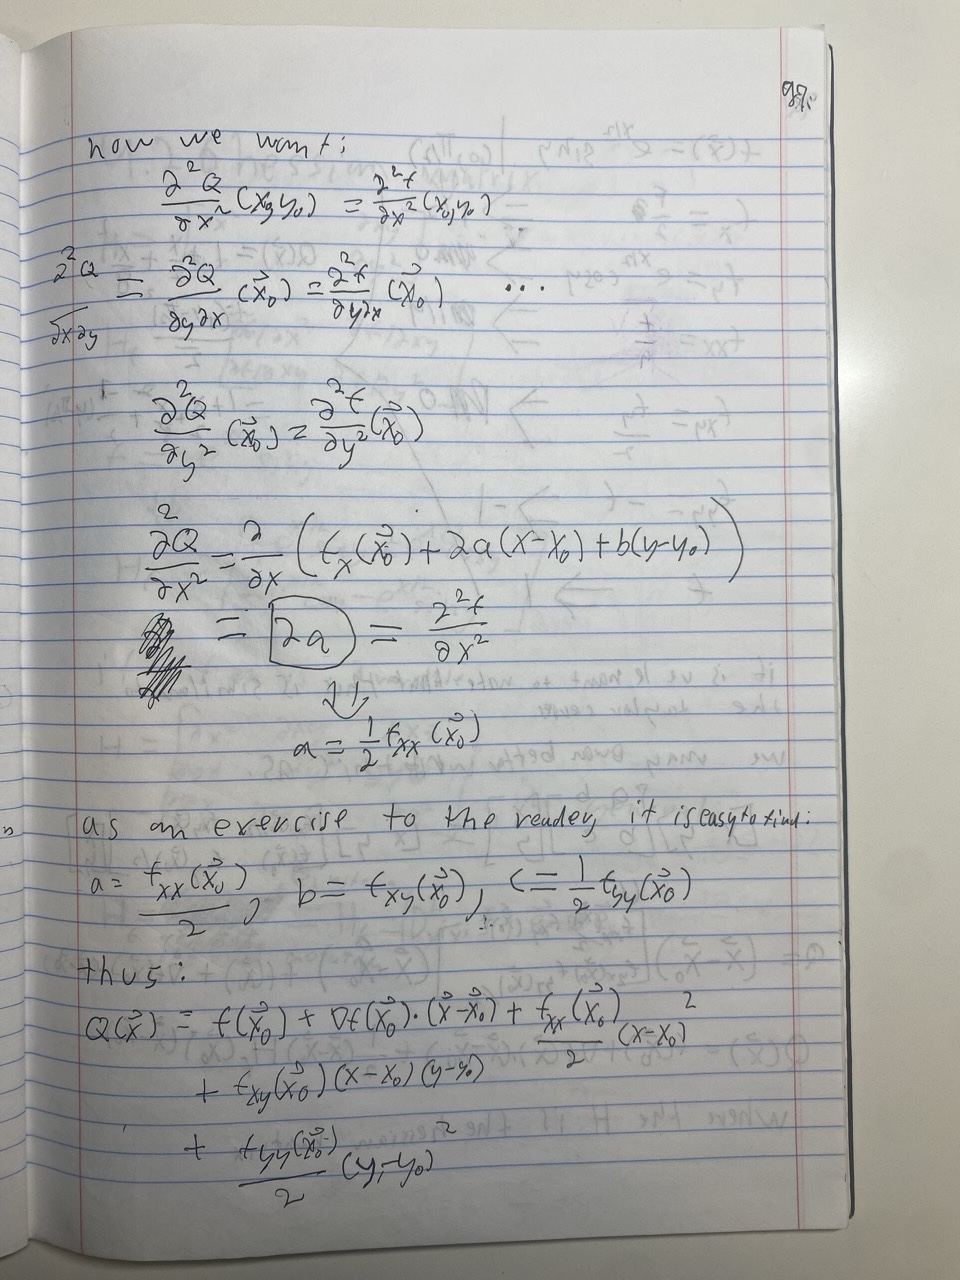 now we want:
∂²Q/∂x² (x₀,y₀) = ∂²f/∂x² (x₀,y₀)
∂²Q/∂x∂y = ∂²Q/∂y∂x (x⃗₀) = ∂²f/∂y∂x (x⃗₀) ...
∂²Q/∂y² (x⃗₀) = ∂²f/∂y² (x⃗₀)
∂²Q/∂x² = ∂/∂x (fₓ(x⃗₀) + 2a(x-x₀) + b(y-y₀))
= 2a = ∂²f/∂x²
⇓
a = 1/2 fₓₓ(x⃗₀)
as an exercise to the reader it is easy to find:
a = fₓₓ(x⃗₀)/2, b = f_xy(x⃗₀), c = 1/2 f_yy(x⃗₀)
thus:
Q(x⃗) = f(x⃗₀) + ∇f(x⃗₀)·(x⃗-x⃗₀) + fₓₓ(x⃗₀)/2 (x-x₀)²
+ f_xy(x⃗₀)(x-x₀)(y-y₀)
+ f_yy(x⃗₀)/2 (y-y₀)²